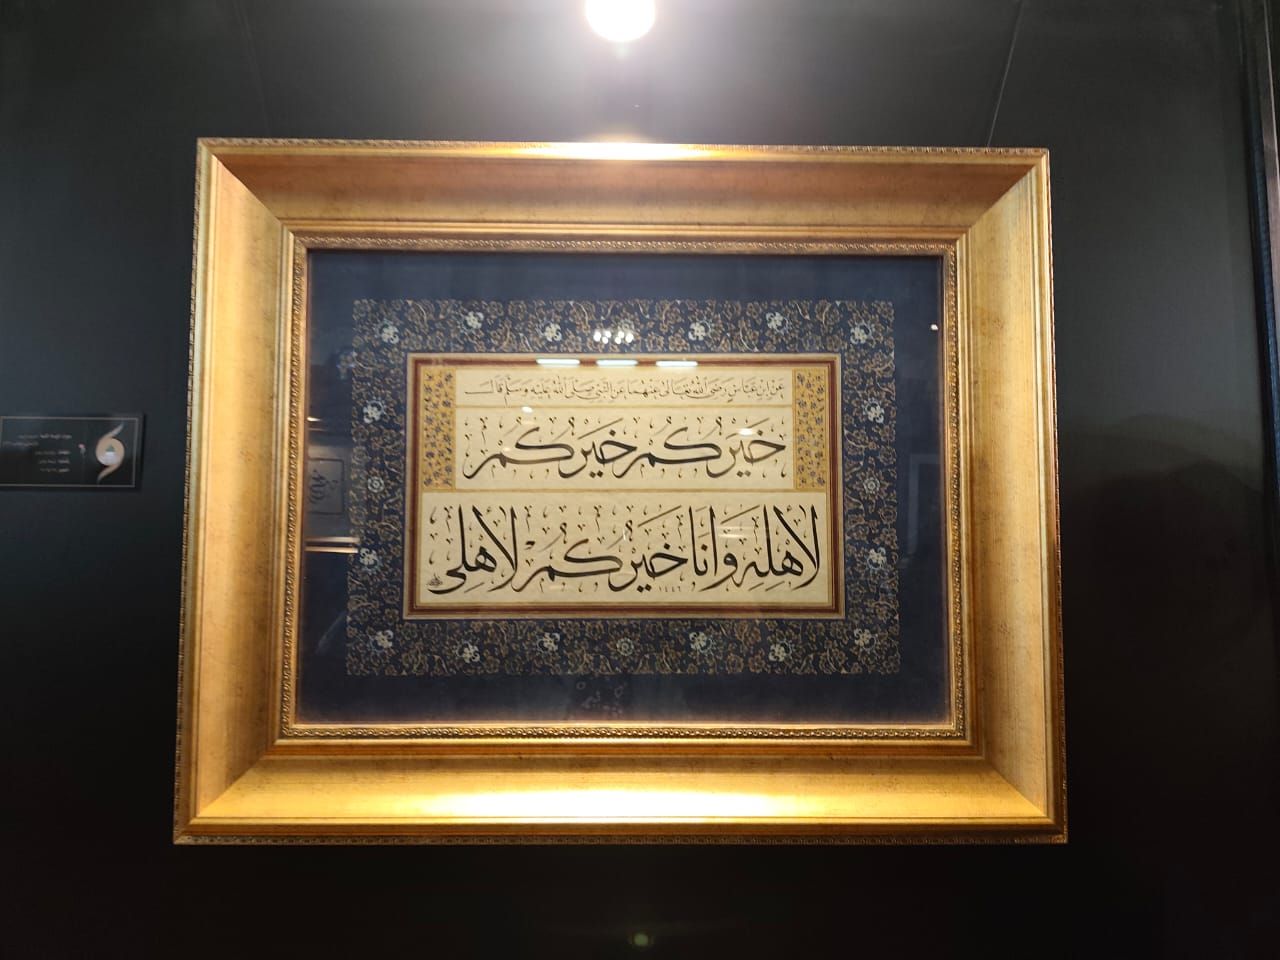 عَنِ ابْنِ عَبَّاسٍ رَضِيَ اللهُ تَعَالَىٰ عَنْهُمَا عَنِ النَّبِيِّ صَلَّى اللهُ عَلَيْهِ وَسَلَّمَ قَالَ
خَيْرُكُمْ خَيْرُكُمْ
لِأَهْلِهِ وَأَنَا خَيْرُكُمْ لِأَهْلِي
١٤٤٦